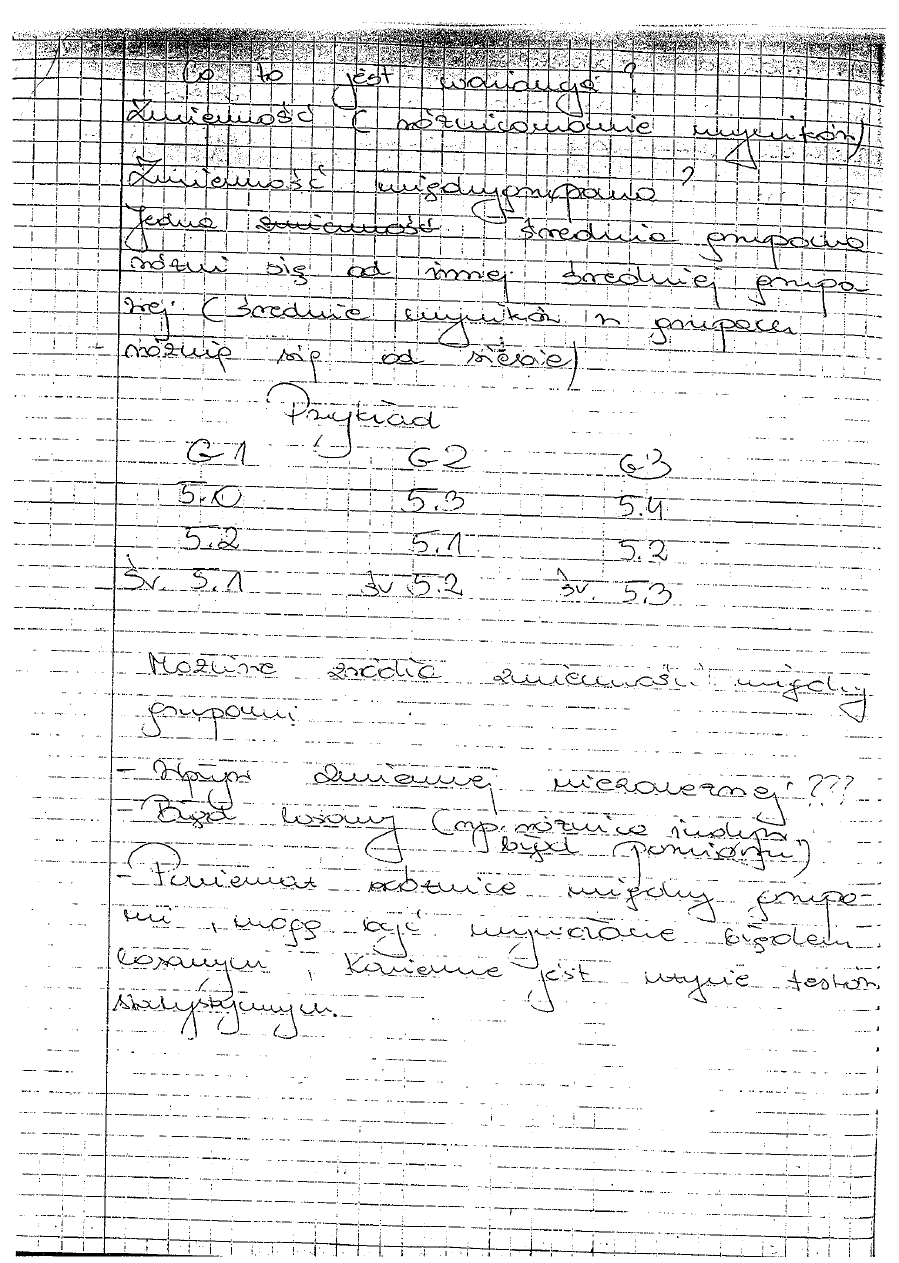 Co to jest wariancja?
Zmienność (różnicowanie wyników)
Zmienność międzygrupowa?
Jedna zmienność średnia grupowa
różni się od innej średniej grupo
wej (średnie wyników w grupach
różnią się od siebie)
Przykład
G1 G2 G3
5.0 5.3 5.4
5.2 5.1 5.2
śr. 5.1 śr 5.2 śr. 5.3
Możliwe źródła zmienności między
grupami
- Wpływ zmiennej niezależnej ???
- Błąd losowy (np. różnice indyw
błąd pomiaru)
- Ponieważ różnice między grupa-
mi, mogą być wywołane błędem
losowym, konieczne jest użycie testów
statystycznym.